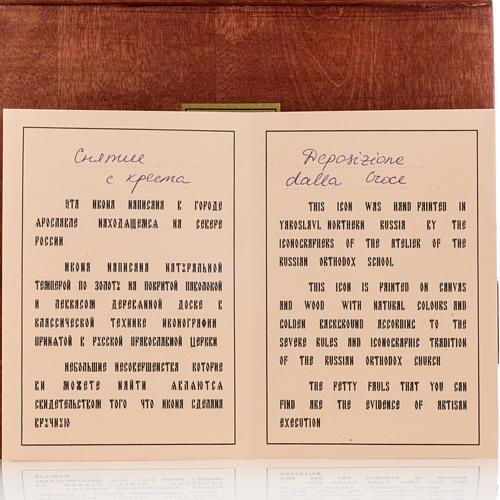 Снятие
с креста
ЭТА ИКОНА НАПИСАНА В ГОРОДЕ
ЯРОСЛАВЛЕ НАХОДЯЩЕМСЯ НА СЕВЕРЕ
РОССИИ
ИКОНА НАПИСАНА НАТУРАЛЬНОЙ
ТЕМПЕРОЙ ПО ЗОЛОТУ НА ПОКРИТОЙ ПАВОЛОКОЙ
И ЛЕВКАСОМ ДЕРЕВЯННОЙ ДОСКЕ В
КЛАССИЧЕСКОЙ ТЕХНИКЕ ИКОНОГРАФИИ
ПРИНЯТОЙ В РУССКОЙ ПРАВОСЛАВНОЙ ЦЕРКВИ
НЕБОЛЬШИЕ НЕСОВЕРШЕНСТВА КОТОРИЕ
ВИ МОЖЕТЕ НАЙТИ ЯВЛЯЮТСЯ
СВИДЕТЕЛЬСТВОМ ТОГО ЧТО ИКОНА СДЕЛАНА
ВРУЧНУЮ
Deposizione
dalla Croce
THIS ICON WAS HAND PAINTED IN
YAROSLAVL NORTHERN RUSSIA BY THE
ICONOGRAPHERS OF THE ATELIER OF THE
RUSSIAN ORTHODOX SCHOOL
THIS ICON IS PAINTED ON CANVAS
AND WOOD WITH NATURAL COLOURS AND
GOLDEN BACKGROUND ACCORDING TO THE
SEVERE RULES AND ICONOGRAPHIC TRADITION
OF THE RUSSIAN ORTHODOX CHURCH
THE PETTY FAULS THAT YOU CAN
FIND ARE THE EVIDENCE OF ARTISAN
EXECUTION